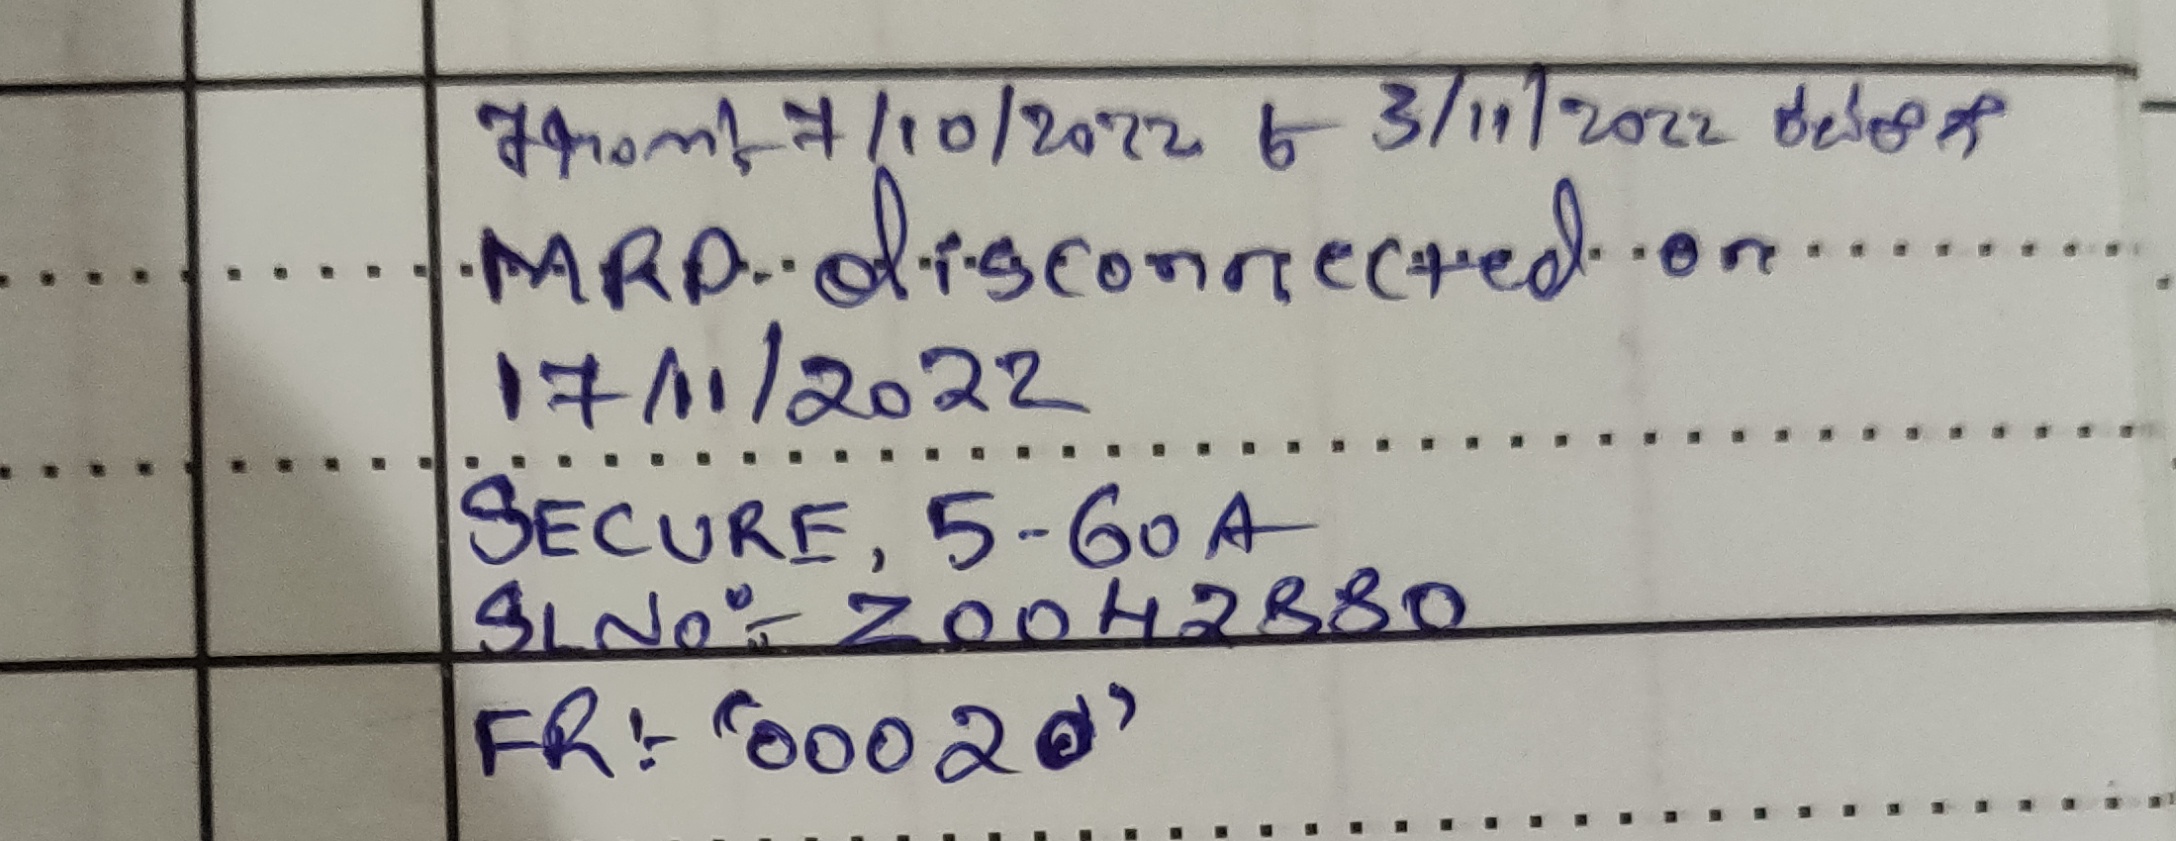 From:- 7/10/2022 to 3/11/2022
MRD. disconnected on
17/11/2022
SECURE, 5-60A
SLNO:- Z0042880
FR:- "00020"